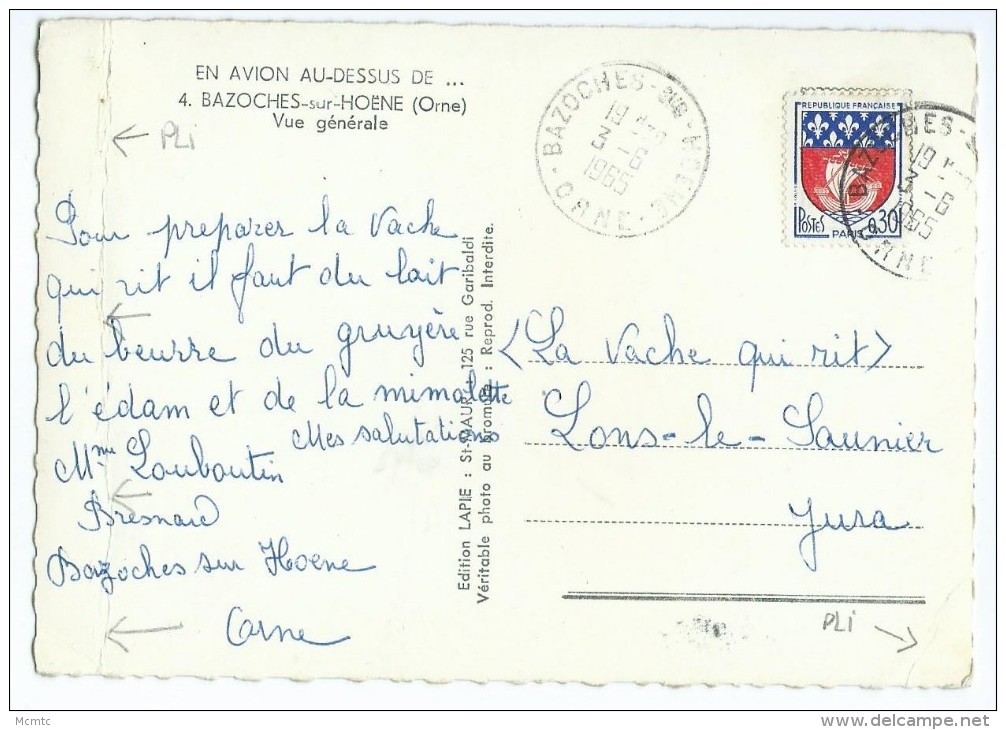 EN AVION AU-DESSUS DE ...
4. BAZOCHES-sur-HOËNE (Orne)
Vue générale
PLI
Pour preparer la Vache
qui rit il faut du lait
du beurre du gruyère
l'édam et de la mimolette
Mes salutations
Mme Louboutin
Bresnard
Bazoches sur Hoene
Orne
Edition LAPIE : St-MAUR - 125 rue Garibaldi
Véritable photo au bromure : Reprod. Interdite.
BAZOCHES-SUR-HOENE
19 H
3 - 6
1965
ORNE
REPUBLIQUE FRANÇAISE
POSTES
PARIS
0,30
19 H
3 - 6
1965
ORNE
<La Vache qui rit>
Lons-le-Saunier
Jura
PLI
Mcmtc
www.delcampe.net